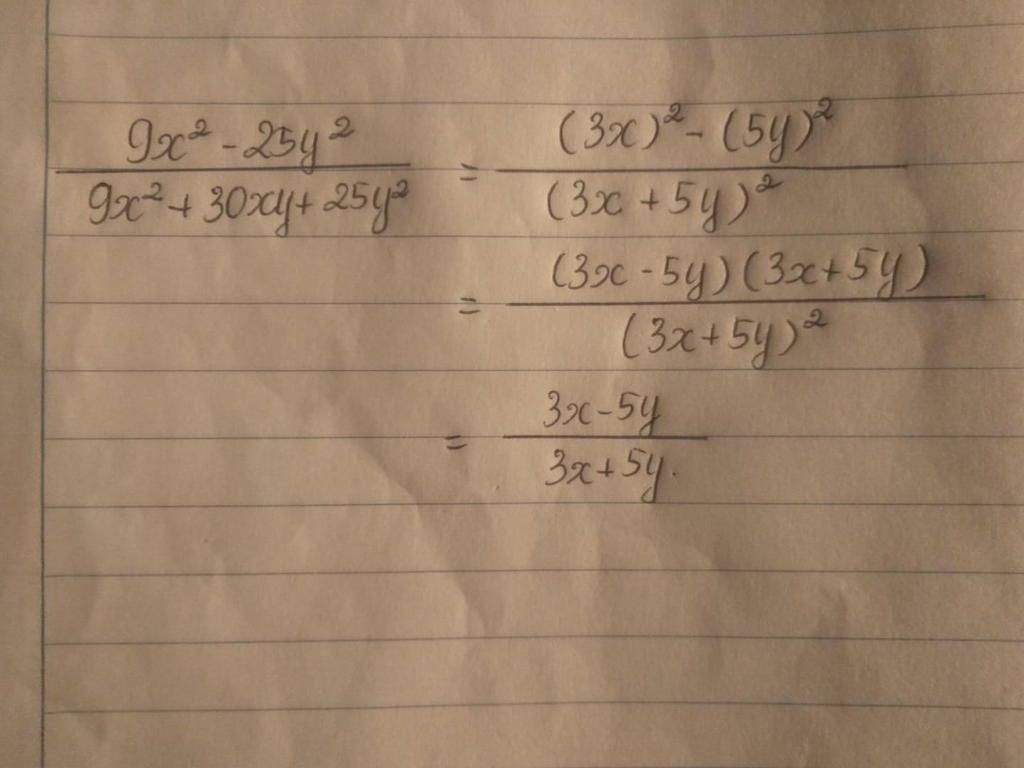 9x² - 25y² / 9x² + 30xy + 25y² = (3x)² - (5y)² / (3x + 5y)²
= (3x - 5y)(3x + 5y) / (3x + 5y)²
= 3x - 5y / 3x + 5y.